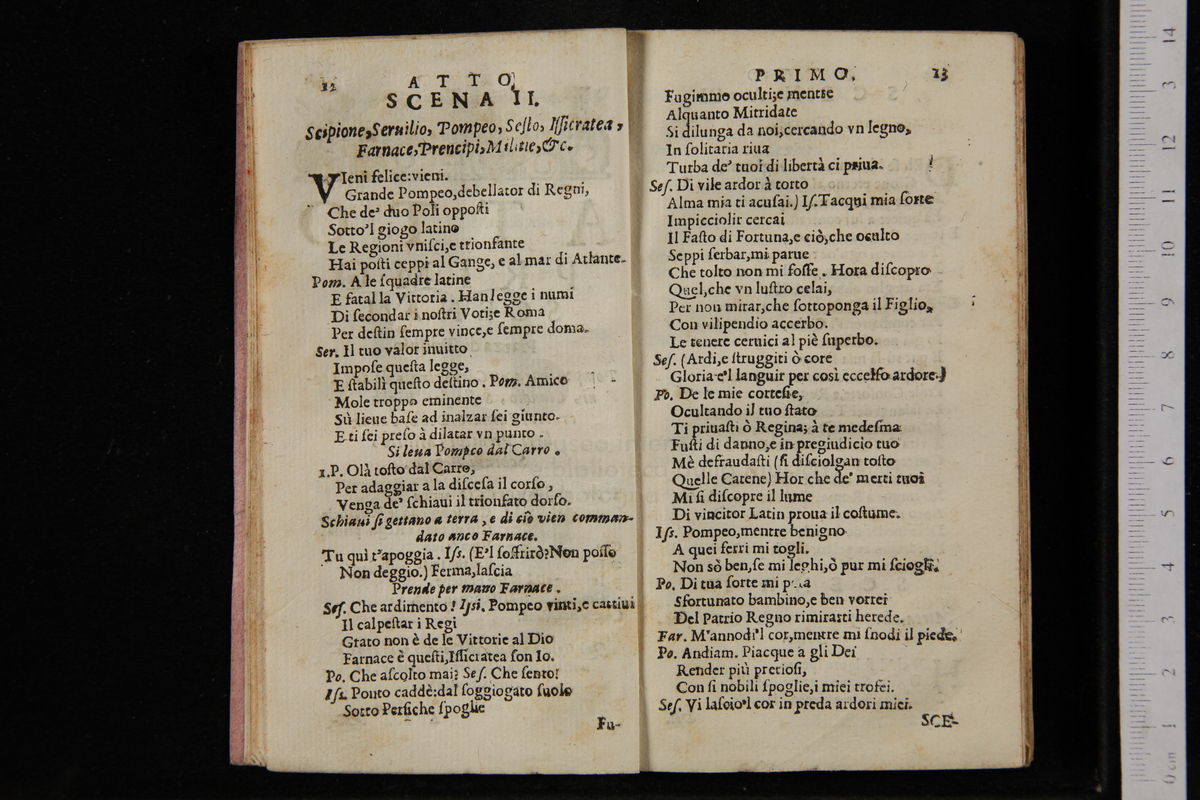 12
ATTO
SCENA II.
Scipione, Seruilio, Pompeo, Sesto, Issicratea,
Farnace, Prencipi, Militie, &c.
VIeni felice: vieni.
Grande Pompeo, debellator di Regni,
Che de' duo Poli opposti
Sotto'l giogo latino
Le Regioni vnisci, e trionfante
Hai posti ceppi al Gange, e al mar di Atlante.
Pom. A le squadre latine
E fatal la Vittoria. Han legge i numi
Di secondar i nostri Voti; e Roma
Per destin sempre vince, e sempre doma.
Ser. Il tuo valor inuitto
Impose questa legge,
E stabilì questo destino. Pom. Amico
Mole troppo eminente
Sù lieue base ad inalzar sei giunto.
E ti sei preso à dilatar vn punto.
Si leua Pompeo dal Carro.
1.P. Olà tosto dal Carro,
Per adaggiar a la discesa il corso,
Venga de' schiaui il trionfato dorso.
Schiaui si gettano a terra, e di ciò vien comman-
dato anco Farnace.
Tu quì t'apoggia. Iss. (E'l soffrirò? Non posso
Non deggio.) Ferma, lascia
Prende per mano Farnace.
Ses. Che ardimento! Issi. Pompeo vinti, e cattiui
Il calpestar i Regi
Grato non è de le Vittorie al Dio
Farnace è questi, Issicratea son Io.
Po. Che ascolto mai? Ses. Che sento!
Iss. Ponto caddè: dal soggiogato suolo
Sotto Persiche spoglie
Fu-
PRIMO. 13
Fugimmo occulti; e mentre
Alquanto Mitridate
Si dilunga da noi, cercando vn legno,
In solitaria riua
Turba de' tuoi di libertà ci priua.
Ses. Di vile ardor à torto
Alma mia ti acusai.) Is. Tacqui mia sorte
Impicciolir cercai
Il Fasto di Fortuna, e ciò, che oculto
Seppi serbar, mi parue
Che tolto non mi fosse. Hora discopro
Quel, che vn lustro celai,
Per non mirar, che sottoponga il Figlio,
Con vilipendio accerbo.
Le tenere ceruici al piè superbo.
Ses. (Ardi, e struggiti ò core
Gloria e'l languir per così eccelso ardore.)
Po. De le mie cortesie,
Ocultando il tuo stato
Ti priuasti ò Regina; à te medesma
Fusti di danno, e in pregiudicio tuo
Mè defraudasti (si disciolgan tosto
Quelle Catene) Hor che de' merti tuoi
Mi si discopre il lume
Di vincitor Latin proua il costume.
Iss. Pompeo, mentre benigno
A quei ferri mi togli.
Non sò ben, se mi leghi, ò pur mi sciogli.
Po. Di tua sorte mi
Sfortunato bambino, e ben vorrei
Del Patrio Regno rimirarti herede.
Far. M'annodi'l cor, mentre mi snodi il piede.
Po. Andiam. Piacque a gli Dei
Render più pretiosi,
Con si nobili spoglie, i miei trofei.
Ses. Vi lascio'l cor in preda ardori miei.
SCE-